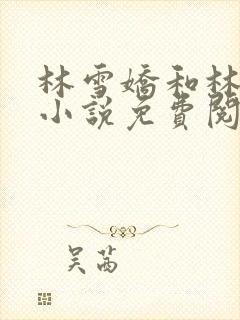 林雪嬌和林
小說免費閱
吴茜